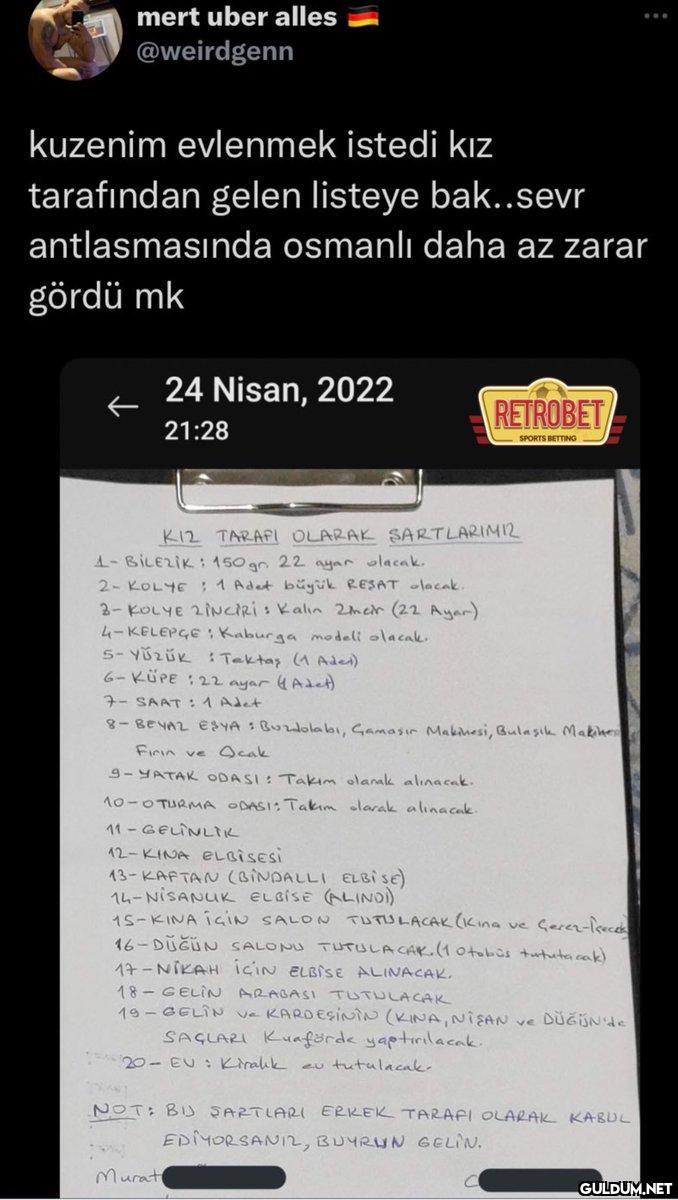 mert uber alles
@weirdgenn
kuzenim evlenmek istedi kız
tarafından gelen listeye bak..sevr
antlasmasında osmanlı daha az zarar
gördü mk
24 Nisan, 2022
21:28
RETROBET
SPORTS BETTING
KIZ TARAFI OLARAK ŞARTLARIMIZ
1- BİLEZİK : 150 gr. 22 ayar olacak.
2- KOLYE : 1 Adet büyük REŞAT olacak.
3- KOLYE ZİNCİRİ : Kalın Zincir (22 Ayar)
4- KELEPÇE : Kaburga modeli olacak.
5- YÜZÜK : Tektaş (1 Adet)
6- KÜPE : 22 ayar (1 Adet)
7- SAAT : 1 Adet
8- BEYAZ EŞYA : Buzdolabı, Çamaşır Makinesi, Bulaşık Makines
Fırın ve Ocak
9- YATAK ODASI : Takım olarak alınacak.
10- OTURMA ODASI : Takım olarak alınacak.
11- GELİNLİK
12- KINA ELBİSESİ
13- KAFTAN (BİNDALLI ELBİSE)
14- NİŞANLIK ELBİSE (ALINDI)
15- KINA İÇİN SALON TUTULACAK (Kına ve Çerez-İçecek
16- DÜĞÜN SALONU TUTULACAK. (1 Otobüs tutulacak)
17- NİKAH İÇİN ELBİSE ALINACAK.
18- GELİN ARABASI TUTULACAK
19- GELİN ve KARDEŞİNİN (KINA, NİŞAN ve DÜĞÜN'de
SAÇLARI Kuaförde yaptırılacak.
20- EV : Kiralık ev tutulacak.
NOT : BU ŞARTLARI ERKEK TARAFI OLARAK KABUL
EDİYORSANIZ, BUYRUN GELİN.
Murat
GULDUM.NET